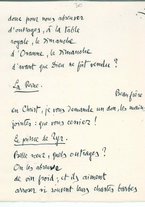 donc pour nous abreuver
d'outrages, à la table
royale, le Dimanche
d'Osanne, le Dimanche
d'avant que Dieu ne fut vendu ?
La Reine.
Beau frère
en Christ, je vous demande un don, les mains
jointes : que vous cessiez !
Le prince de Tyr.
Belle nièce, quels outrages ?
On les abreuve
de vin froid, et ils aiment
arroser si souvent leurs chastes barbes